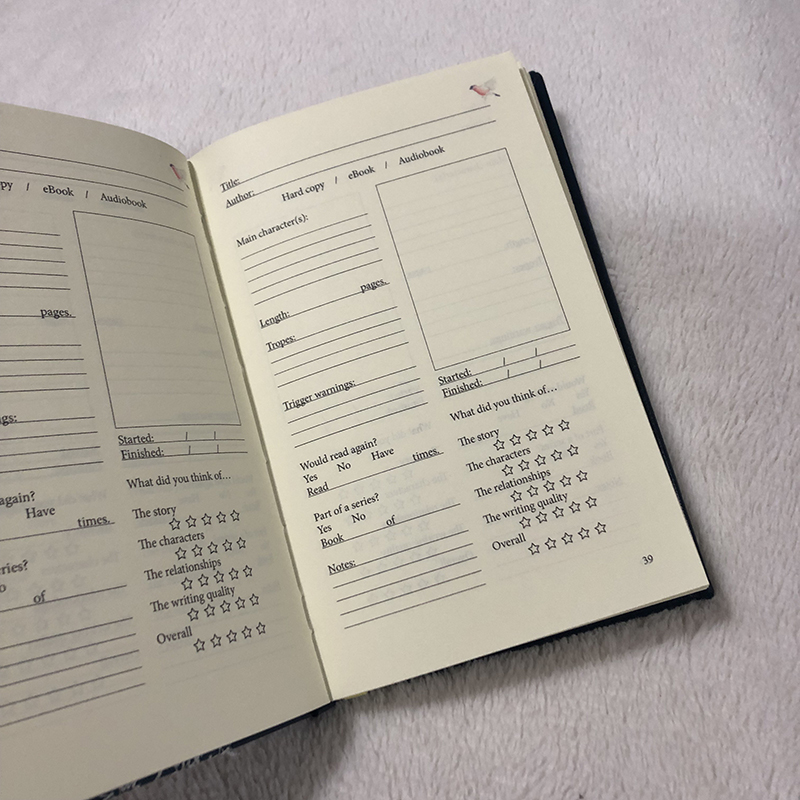 py / eBook / Audiobook
pages.
gs:
Started: / /
Finished: / /
again?
Have
times.
ries?
o
of
What did you think of…
The story
The characters
The relationships
The writing quality
Overall
Title:
Author:
Hard copy / eBook / Audiobook
Main character(s):
Length: pages.
Tropes:
Trigger warnings:
Would read again?
Yes No Have
Read times.
Part of a series?
Yes No
Book of
Notes:
Started: / /
Finished: / /
What did you think of…
The story
The characters
The relationships
The writing quality
Overall
39